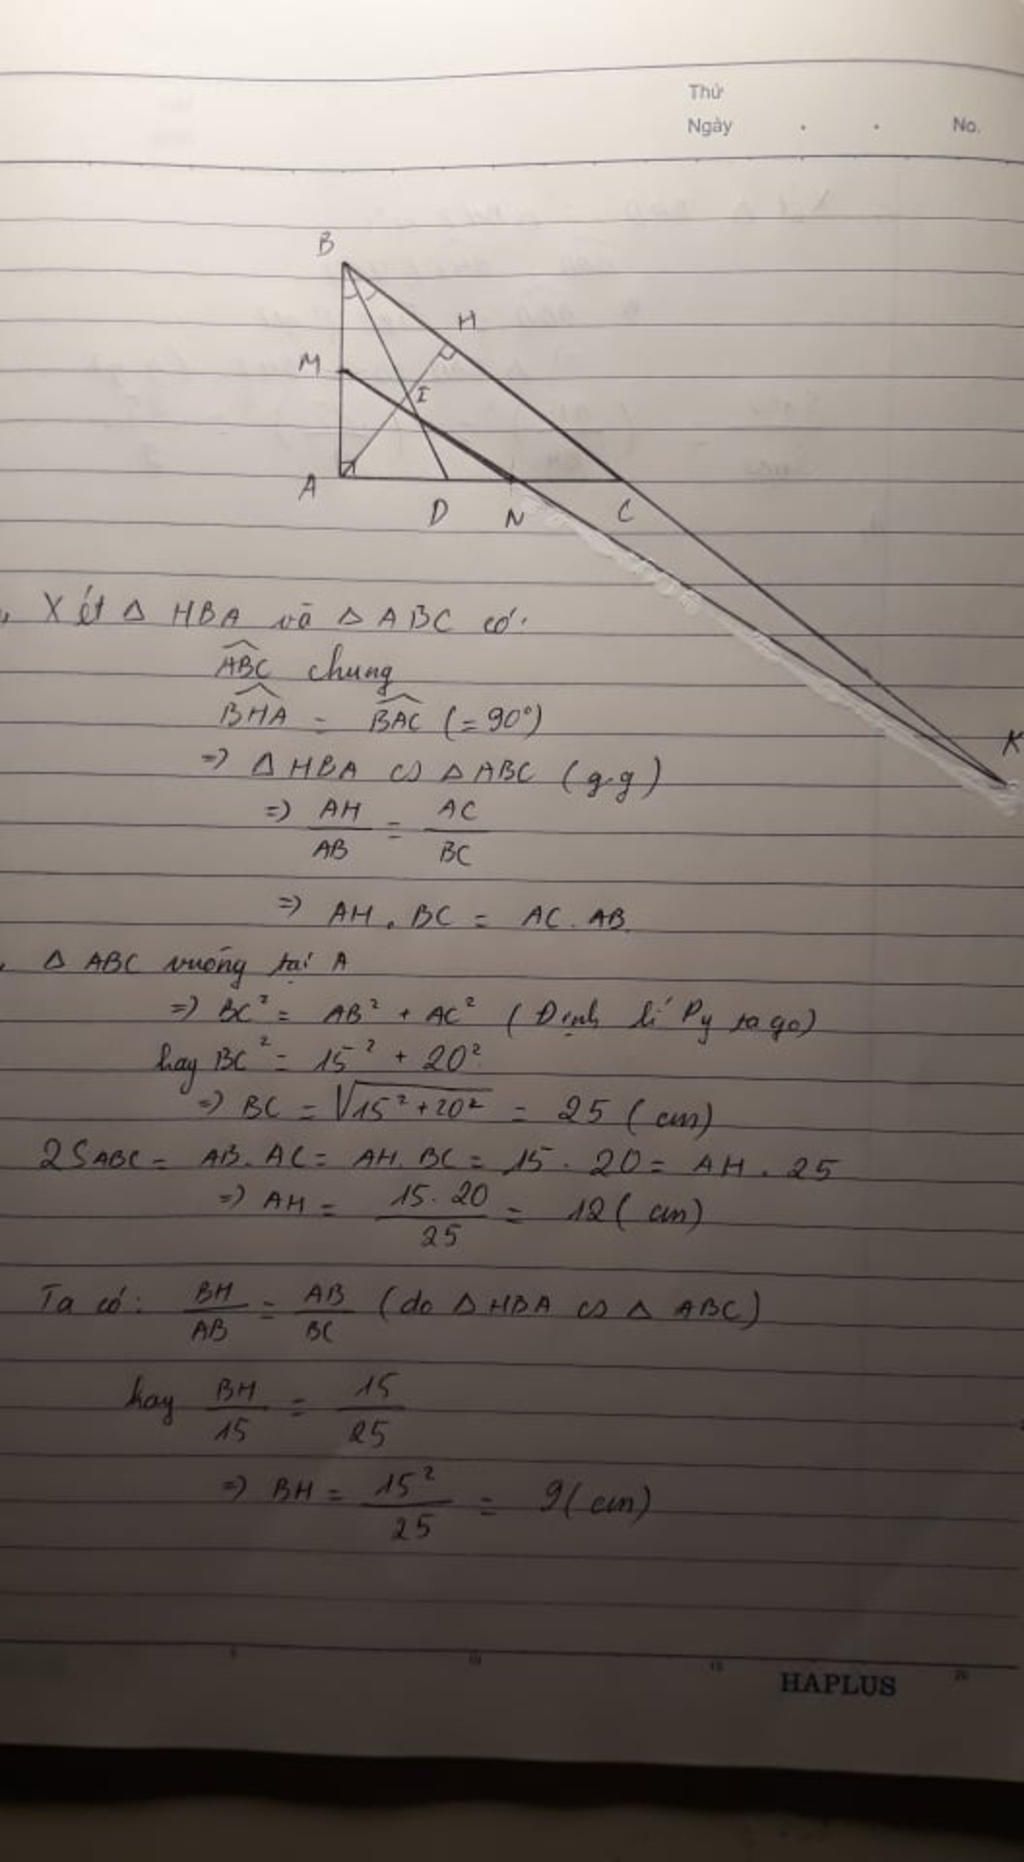 Thứ
Ngày . . No.
B
H
M
I
A
D N C
K
, Xét Δ HBA và Δ ABC có:
\widehat{ABC} chung
\widehat{BHA} = \widehat{BAC} (= 90°)
=> Δ HBA ∽ Δ ABC (g.g)
=> AH/AB = AC/BC
=> AH . BC = AC . AB.
Δ ABC vuông tại A
=> BC² = AB² + AC² (Định lí Py ta go)
hay BC² = 15² + 20²
=> BC = √(15² + 20²) = 25 (cm)
2SABC = AB. AC = AH. BC = 15 . 20 = AH . 25
=> AH = 15. 20/25 = 12 (cm)
Ta có: BH/AB = AB/BC (do Δ HBA ∽ Δ ABC)
hay BH/15 = 15/25
=> BH = 15²/25 = 9 (cm)
5 10 15 20
HAPLUS